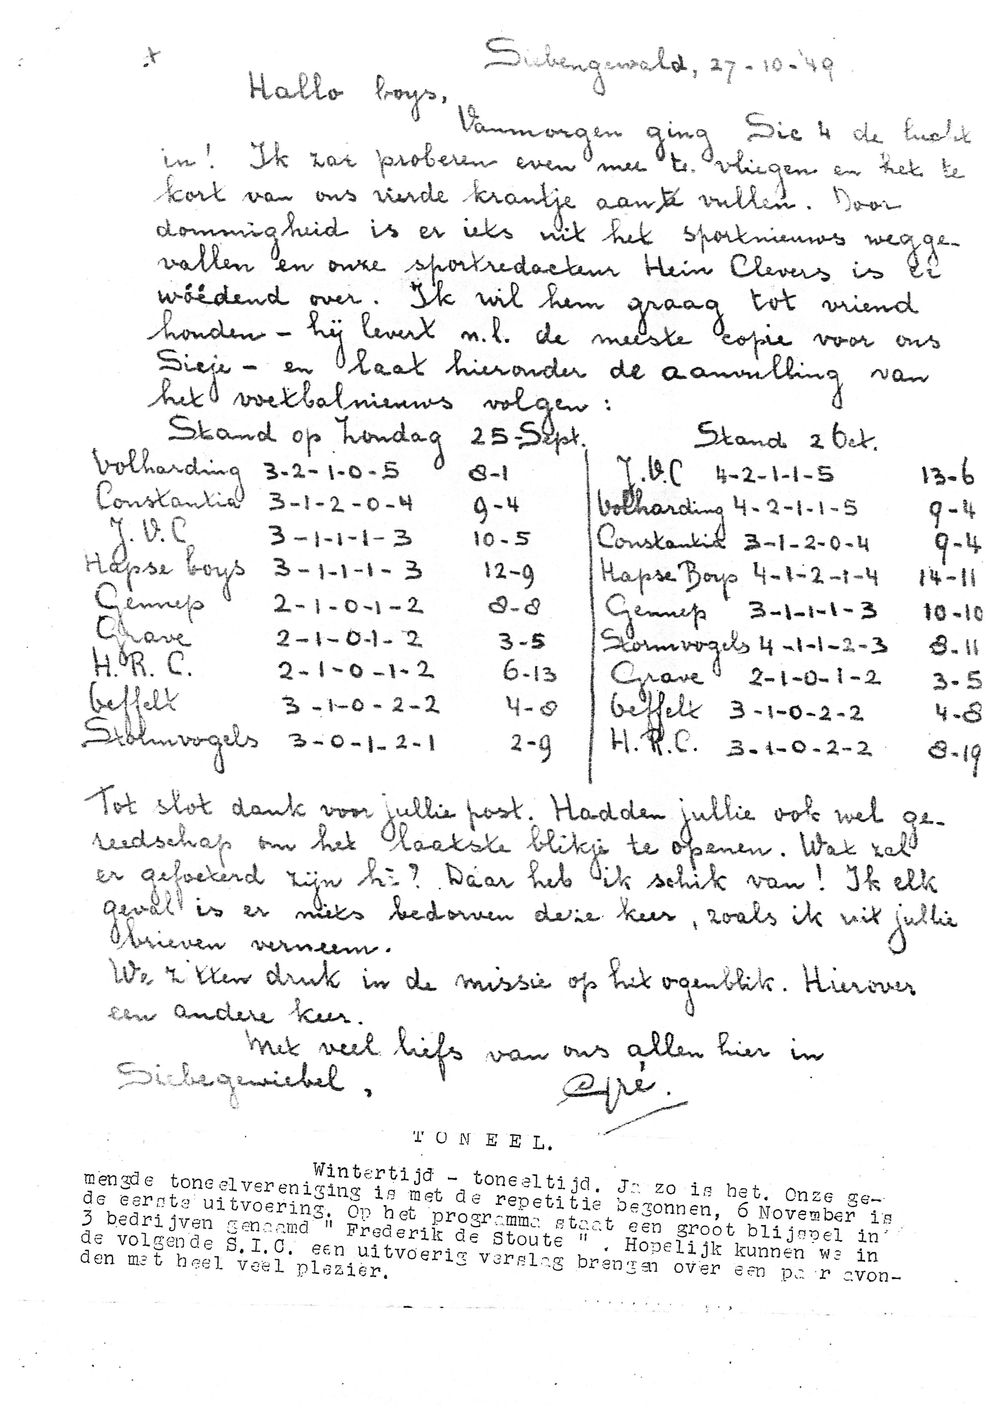 Siebengewald, 27-10-'49
Hallo boys,
Vanmorgen ging Sic 4 de lucht
in! Ik zal proberen even mee te vliegen en het te
kort van ons vierde krantje aan te vullen. Door
dommigheid is er iets uit het sportnieuws wegge-
vallen en onze sportredacteur Hein Clevers is er
wóédend over. Ik wil hem graag tot vriend
houden - hij levert n.l. de meeste copie voor ons
Sicje - en laat hieronder de aanvulling van
het voetbalnieuws volgen:
Stand op Zondag 25-Sept. Stand 2 Oct.
Volharding 3-2-1-0-5 8-1 J.V.C 4-2-1-1-5 13-6
Constantia 3-1-2-0-4 9-4 Volharding 4-2-1-1-5 9-4
J.V.C 3-1-1-1-3 10-5 Constantia 3-1-2-0-4 9-4
Hapse boys 3-1-1-1-3 12-9 Hapse Boys 4-1-2-1-4 14-11
Gennep 2-1-0-1-2 8-8 Gennep 3-1-1-1-3 10-10
Grave 2-1-0-1-2 3-5 Stormvogels 4-1-1-2-3 8-11
H.R.C. 2-1-0-1-2 6-13 Grave 2-1-0-1-2 3-5
beffelt 3-1-0-2-2 4-8 beffelt 3-1-0-2-2 4-8
Stormvogels 3-0-1-2-1 2-9 H.R.C. 3-1-0-2-2 8-19
Tot slot dank voor jullie post. Hadden jullie ook wel ge-
reedschap om het laatste blikje te openen. Wat zal
er gefoeterd zijn hè? Daar heb ik schik van! Ik elk
geval is er niets bedorven deze keer, zoals ik uit jullie
brieven verneem.
We zitten druk in de missie op het ogenblik. Hierover
een andere keer.
Met veel liefs van ons allen hier in
Siebegewiebel,
TONEEL.
Wintertijd - toneeltijd. Ja zo is het. Onze ge-
mengde toneelvereniging is met de repetitie begonnen, 6 November is
de eerste uitvoering. Op het programma staat een groot blijspel in
3 bedrijven genaamd " Frederik de Stoute " . Hopelijk kunnen we in
de volgende S.I.C. een uitvoerig verslag brengen over een paar avon-
den met heel veel plezier.